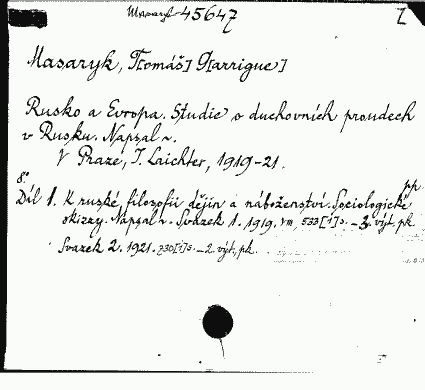 Masaryk 45647
Masaryk, T[omáš] G[arrigue]
Rusko a Evropa. Studie o duchovních proudech
v Rusku. Napsal ~.
V Praze, J. Laichter, 1919-21.
8°
pp
Díl 1. K ruské filosofii dějin a náboženství. Sociologické
skizzy. Napsal ~. Svazek 1. 1919. VIII, 533 [1] s. – 3. výt. pk.
Svazek 2. 1921. 730 [1] s. – 2 výt. pk.